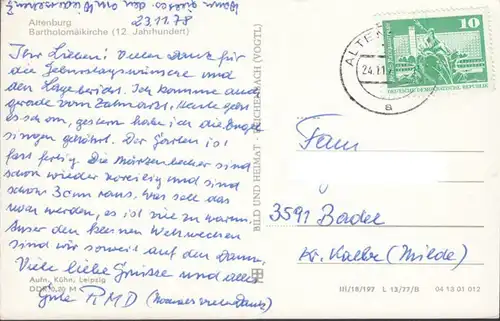 23.11.78
Altenburg
Bartholomäikirche (12. Jahrhundert)
Ihr Lieben! Vielen Dank für
die Geburtstagswünsche und
den Lagebericht. Ich komme auch
gerade vom Zahnarzt. Heute geht
es schon, gestern habe ich die Engel
singen gehört. Der Garten ist
fast fertig. Die Märzenbecher sind
schon wieder voreilig und sind
schon 3 cm raus. Was soll das
nur werden, es ist viel zu warm.
Ausser den kleinen Wehwechen
sind wir soweit auf dem Damm.
Viele liebe Grüsse und alles
Gute RMD
Aufn. Kühn, Leipzig
DDR 0,20 M
BILD UND HEIMAT · REICHENBACH (VOGTL)
ALTENBURG
24.11.
a
10
DEUTSCHE DEMOKRATISCHE REPUBLIK
Fam
3591 Badel
Kr. Kalbe (Milde)
III/18/197 L 13/77/B 04 13 01 012